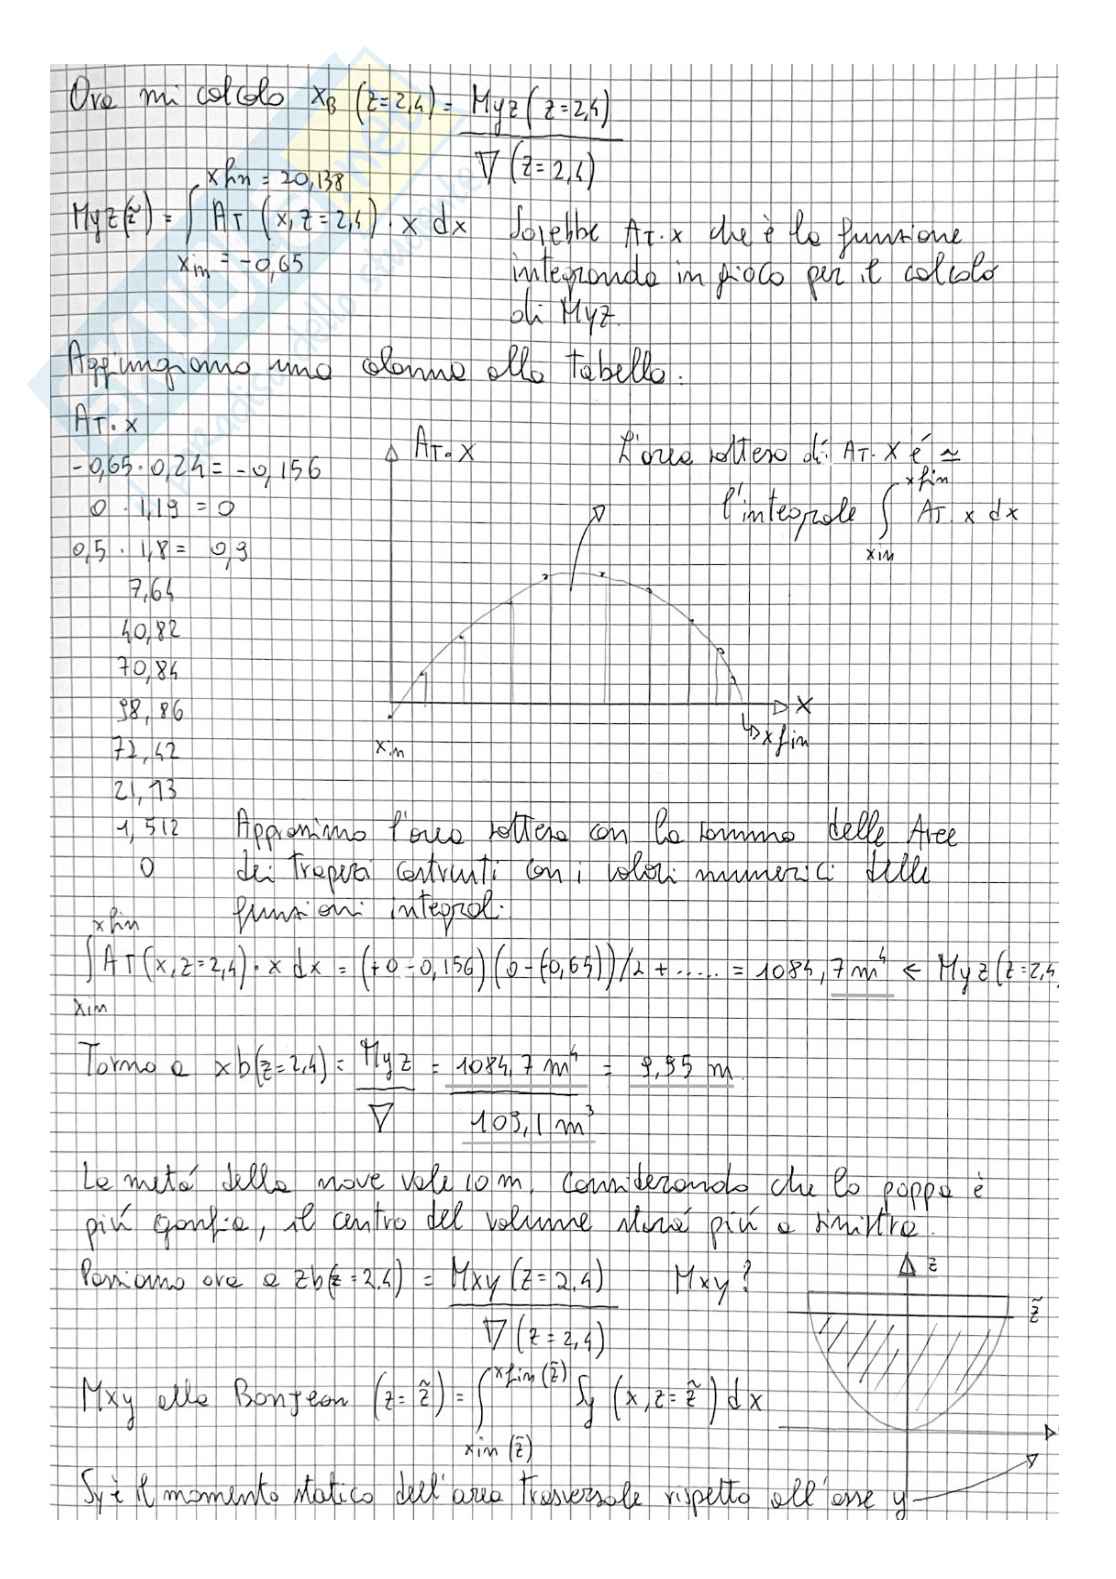 Ora mi calcolo xB (z=2,4) = Myz (z=2,4)
∇ (z=2,4)
x fin = 20,138
Myz(z̃) = ∫ AT (x, z=2,4) · x dx Sarebbe AT·x che è la funzione
xin = -0,65 integranda in gioco per il calcolo
di Myz.
Aggiungiamo una colonna alla tabella:
AT·x
-0,65·0,24 = -0,156
0 · 1,19 = 0
0,5 · 1,8 = 0,9
7,64
40,82
70,84
98,86
72,42
21,13
1,512
0
AT·x
L'area sottesa di AT·x é ≃
x fin
l'integrale ∫ AT·x dx
xin
x
xin
x fin
Approssimo l'area sottesa con la somma delle Aree
dei trapezi costruiti con i valori numerici delle
funzioni integral.
x fin
∫ AT(x, z=2,4)·x dx = (+0-0,156)(0-(-0,65))/2 + ..... = 1084,7 m⁴ ← Myz(z=2,4
xin
Torno a xb(z=2,4) = Myz = 1084,7 m⁴ = 9,95 m
∇ 109,1 m³
La metá della nave vale 10 m, considerando che la poppa è
piú gonfia, il centro del volume stará piú a sinistra.
Passiamo ora a zb(z=2,4) = Mxy (z=2,4) Mxy?
∇ (z=2,4)
z
z̃
Mxy alla Bonjean (z=z̃) = ∫ x fin (z̃) Sy (x, z=z̃) dx
xin (z̃)
Sy è il momento statico dell'area trasversale rispetto all'asse y